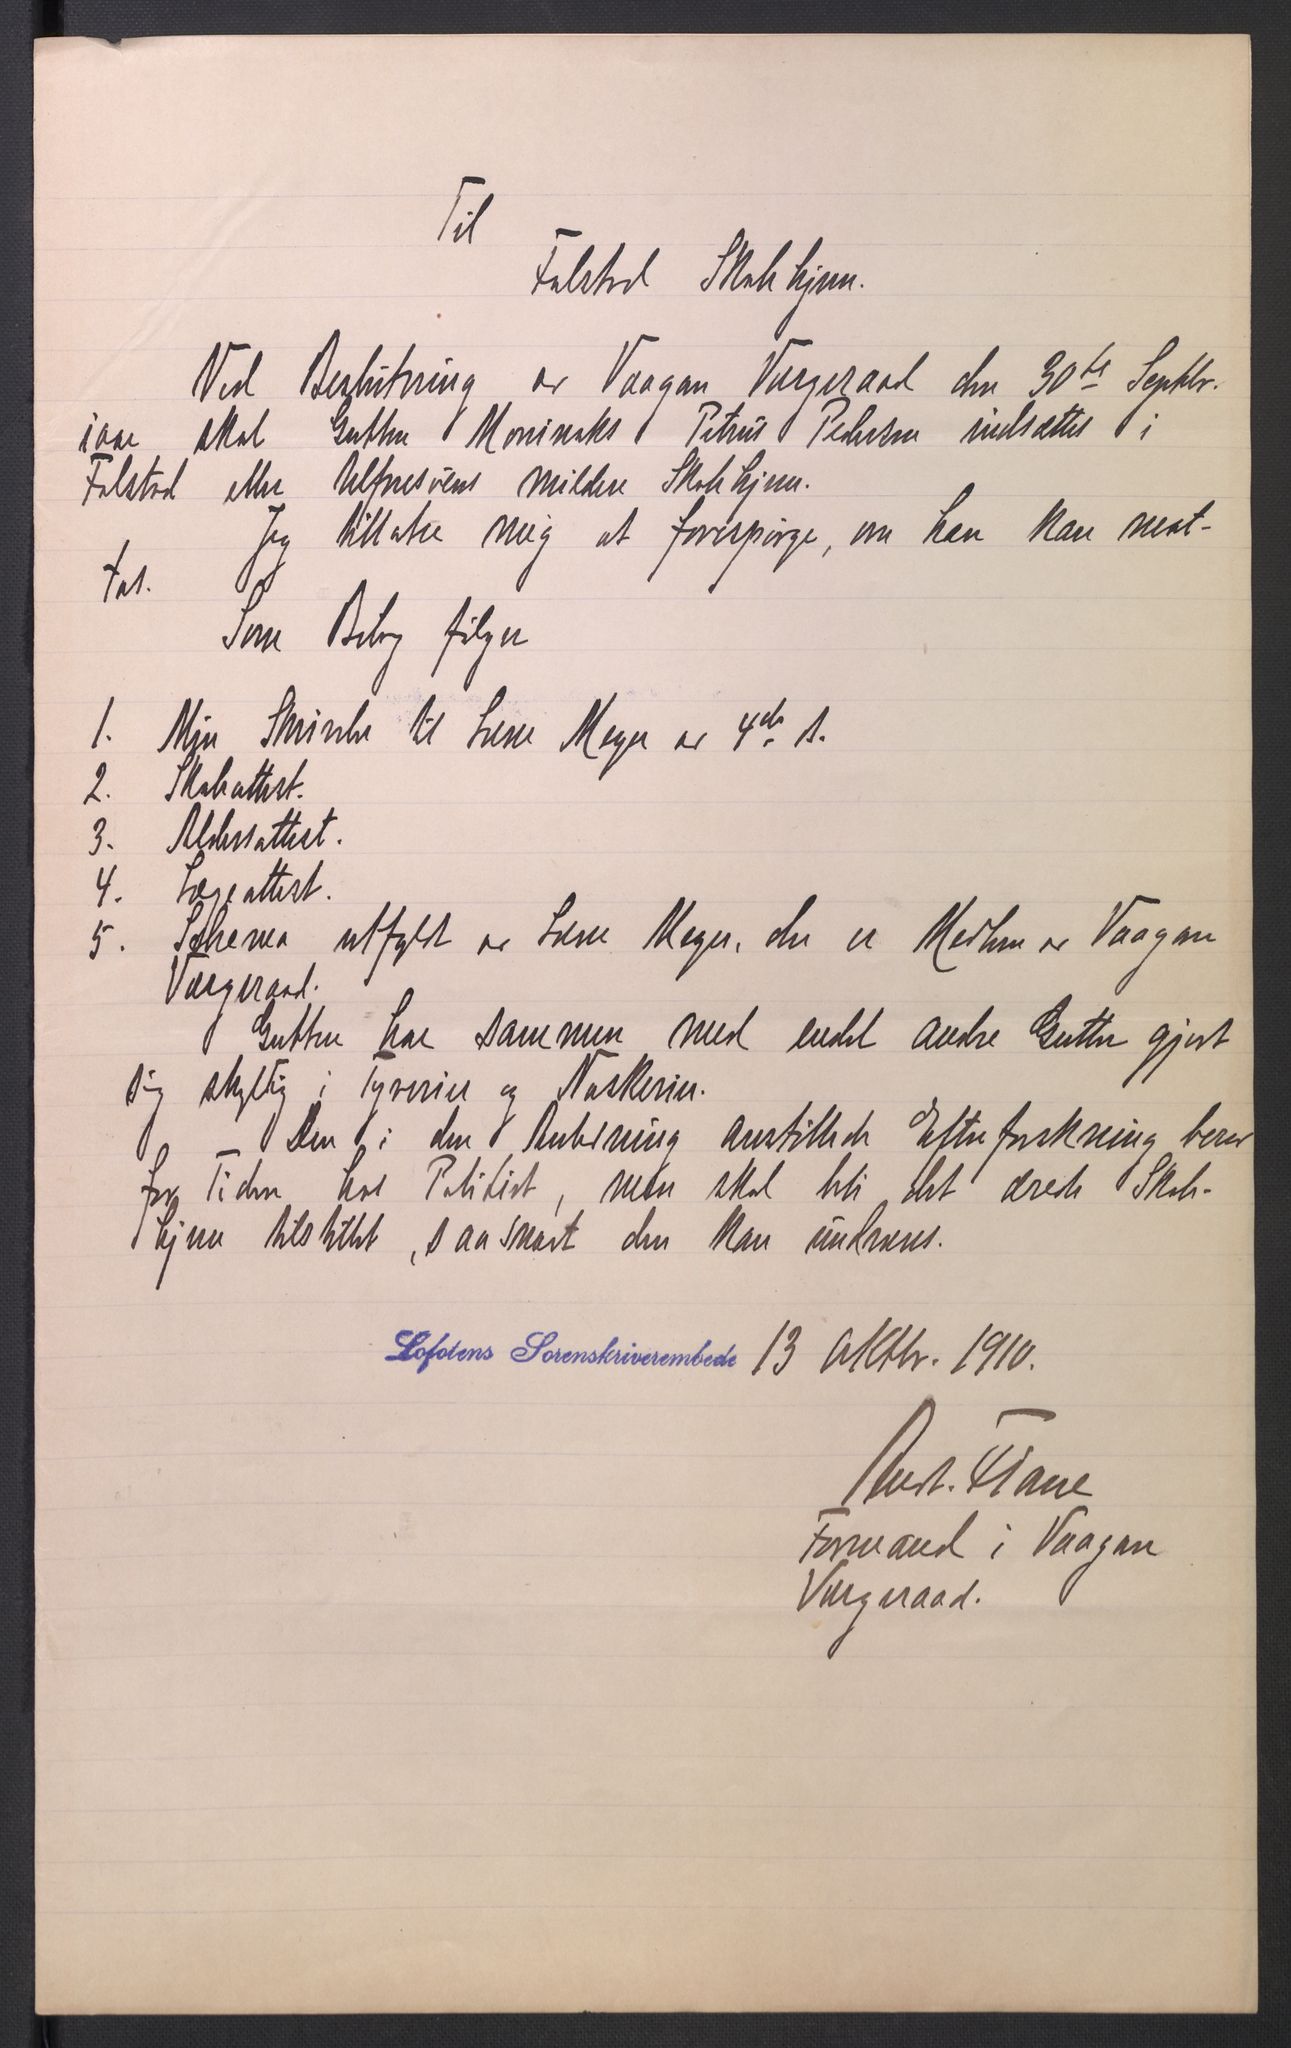 Til
Falstad Skolehjem.
Ved Beslutning av Vaagan Værgeraad den 30te Septbr.
iaar skal Gutten Petrus Pedersen indsættes i
Falstad eller Ulfsnesøens mildere Skolehjem.
Jeg tillater mig at forespørge, om han kan mot-
tas.
Som Bilag følger
1. Min Skrivelse til Læge Meyer av 4de ds.
2. Skoleattest.
3. Aldersattest.
4. Lægeattest.
5. Schema utfyldt av Læge Meyer, der er Medlem av Vaagan
Værgeraad.
Gutten har sammen med endel andre Gutter gjort
sig skyldig i Tyverier og Naskerier.
Den i den Anledning anstillede Efterforskning beror
for Tiden hos Politiet, men skal bli det ærede Skole-
hjem tilstillet, saasnart den kan undværes.
Lofotens Sorenskriverembede 13 oktbr. 1910.
Formand i Vaagan
Værgeraad.